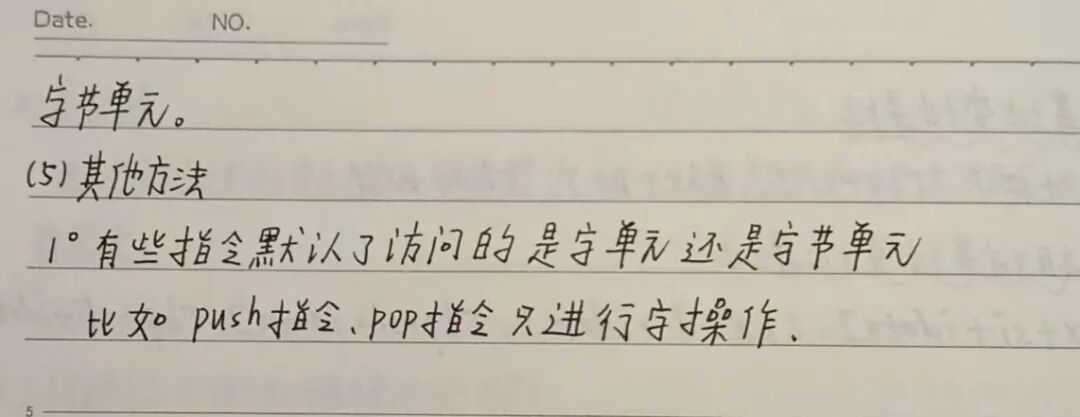 Date. NO.
字节单元。
(5)其他方法
1°有些指令默认了访问的是字单元还是字节单元
比如push指令、pop指令只进行字操作.
5